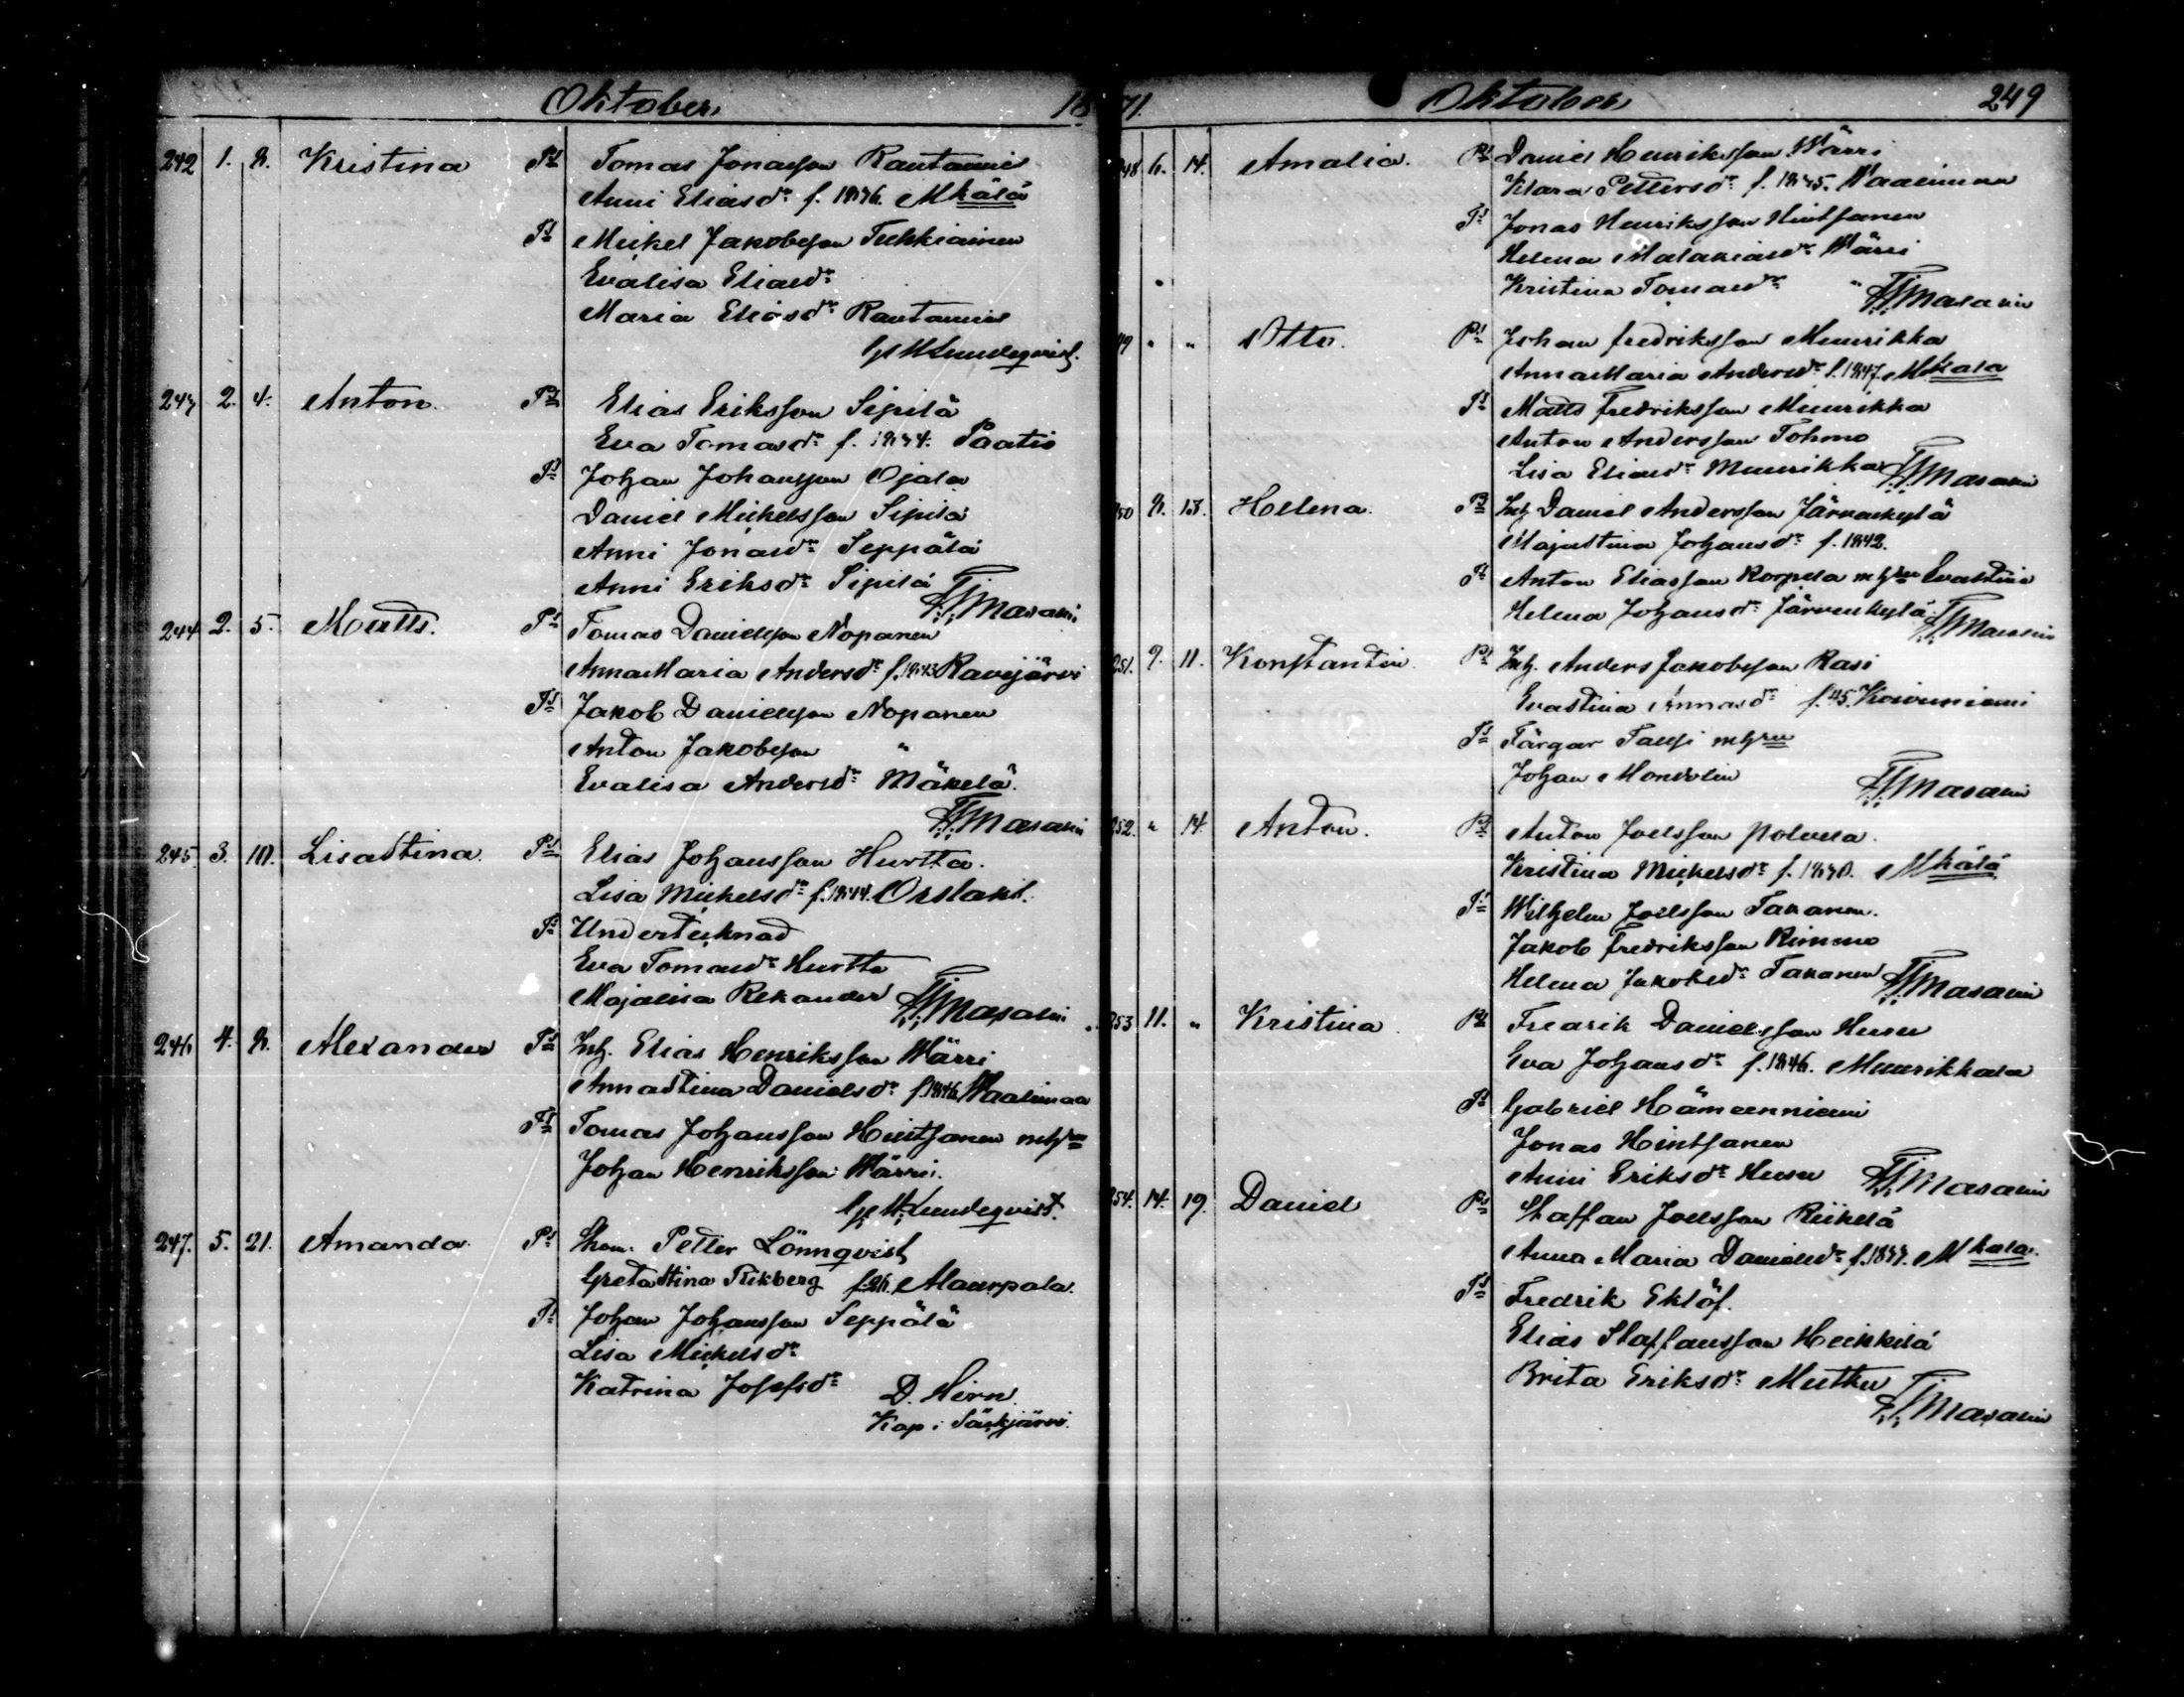 Oktober 18
242 1. 8. Kristina Pt Tomas Jonasson Rautamies
Anni Eliasdr f. 1836. Mkälä
Tt Mickel Jakobsson Tukkiainen
Evalisa Eliasdr
Maria Eliasdr Rautamies
G M Lundeqvist.
243 2. 4. Anton. Pt Elias Eriksson Sipilä
Eva Tomasdr f. 1834. Paatio
Tt Johan Johansson Ojala
Daniel Mickelsson Sipilä
Anni Jonasdr Seppälä
Anni Eriksdr Sipilä Masalin
244 2. 5. Matts. Pt Tomas Danielsson Nopanen
AnnaMaria Andersdr f. 1843 Ravijärvi
Tt Jakob Danielsson Nopanen
Anton Jakobsson "
Evalisa Andersdr Mäkelä.
Masalin
245 3. 10. Lisastina. Pt Elias Johansson Hurtta.
Lisa Mickelsdr f. 1844. Orslaks.
Tt Undertecknad
Eva Tomasdr Hurtta
Majalisa Rekander Masalin
246 4. 8. Alexander Pt Inh. Elias Henriksson Wärri
Annastina Danielsdr f. 1846. Waalimaa
Tt Tomas Johansson Hintsanen m hru
Johan Henriksson Wärri.
G M Lundeqvist.
247. 5. 21. Amanda. Pt Petter Lönnqvist
Gretastina Fikberg Alaurpala.
Tt Johan Johansson Seppälä
Lisa Mickelsdr
Katrina Josefsdr D. Hirn.
Kap. i Säkjärvi.
71. Oktober 249
248 6. 14. Amalia. Pt Daniel Henriksson Wärri
Klara Pettersdr f. 1845. Waalimaa
Tt Jonas Henriksson Hintsanen
Helena Malakiasdr Wärri
Kristina Tomasdr " Masalin
49 " " Otto. Pt Johan fredriksson Muurikka
AnnaMaria Andersdr f. 1847. Mkala
Tt Matts Fredriksson Muurikka
Anton Andersson Tohmo
Lisa Eliasdr Muurikka Masalin
250 8. 13. Helena. Pt Inh Daniel Andersson Järvenkylä
Majastina Johansdr f. 1842.
Tt Anton Eliasson Korpela m hru Evastina
Helena Johansdr Järvenkylä. Masalin
251. 9. 11. Konstantin Pt Inh. Anders Jakobsson Rasi
Evastina f. 45. Koivuniemi
Tt Färgar Tausi m hru
Johan Mondolin
Masalin
252. " 14. Anton. Pt Anton Joelsson Polvela.
Kristina Mickelsdr f. 1830. Mkälä
Tt Wilhelm Joelsson Takanen.
Jakob Fredriksson Rimmo
Helena Jakobsdr Takanen Masalin
253 11. " Kristina Pt Fredrik Danielsson Husu
Eva Johansdr f. 1846. Muurikkala
Tt Gabriel Hämeenniemi
Jonas Hintsanen
Anni Eriksdr Husu Masalin
254. 14. 19. Daniel Pt Staffan Joelsson Riikelä
Anna Maria Danielsdr f. 1837. Mkala.
Tt Fredrik Eklöf.
Elias Staffansson Heikkilä
Brita Eriksdr Mutku
Masalin